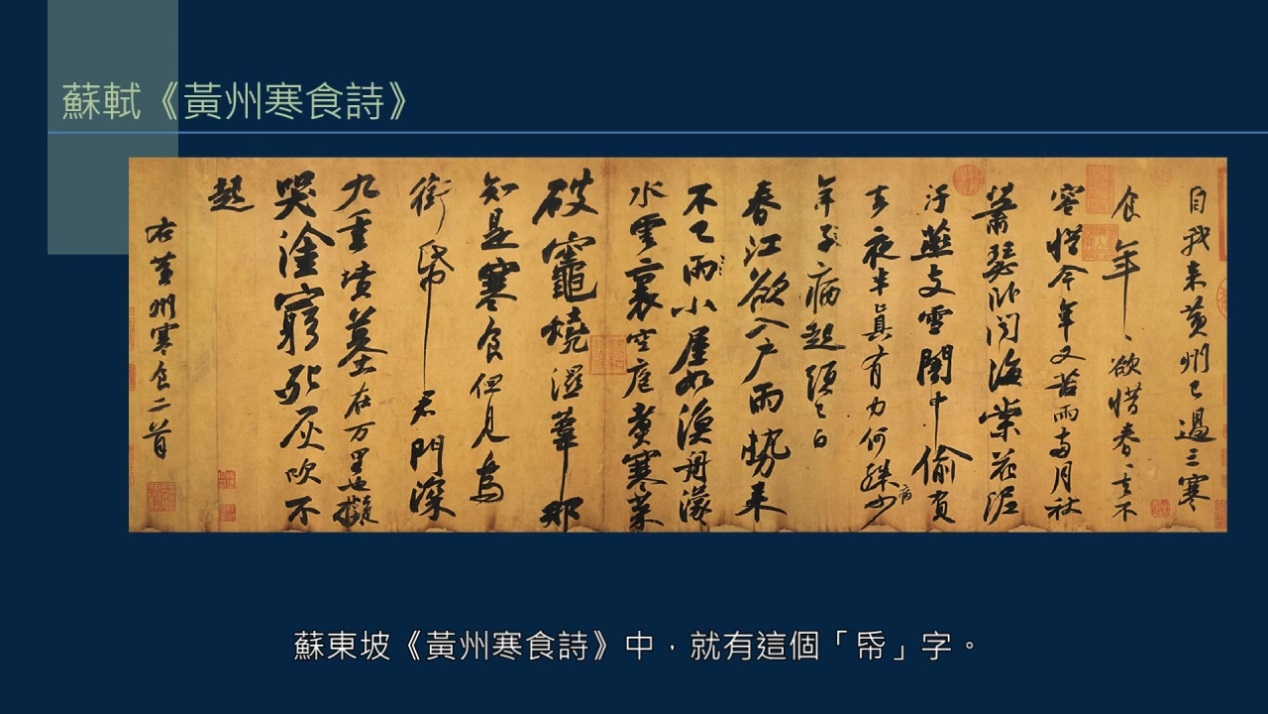 蘇軾《黃州寒食詩》
自我来黄州已過三寒
食年、欲惜春、去不
容惜今年又苦雨兩月秋
蕭瑟卧聞海棠花泥
汙燕支雪闇中偷負
去夜半真有力何殊少
病
年子病起須已白
春江欲入戶雨勢来
不已雨小屋如漁舟濛
水雲裏空庖煮寒菜
破竈燒濕葦那
知是寒食但見烏
銜帋君門深
九重墳墓在万里也擬
哭塗窮死灰吹不
起
右黄州寒食二首
蘇東坡《黃州寒食詩》中，就有這個「帋」字。